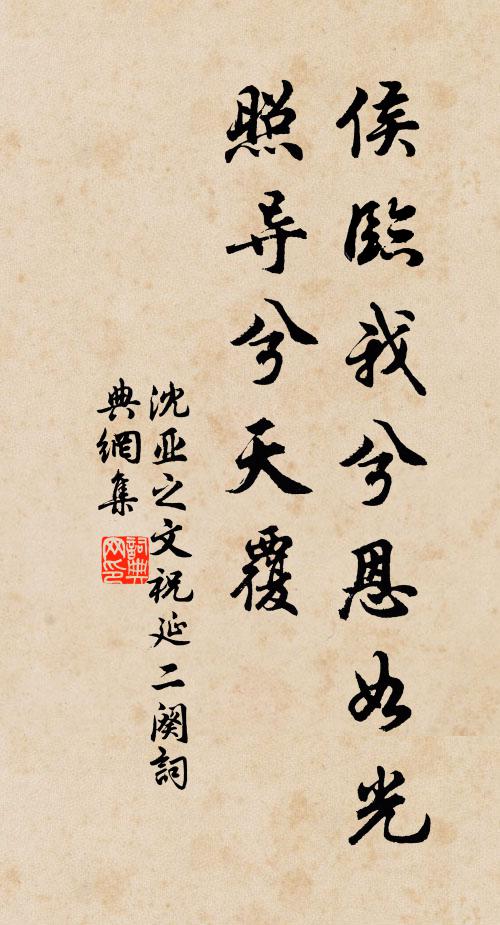 侯臨我兮恩如光
照导兮天覆
沈亚之文祝延二闋詞
典網集
詞典
网印